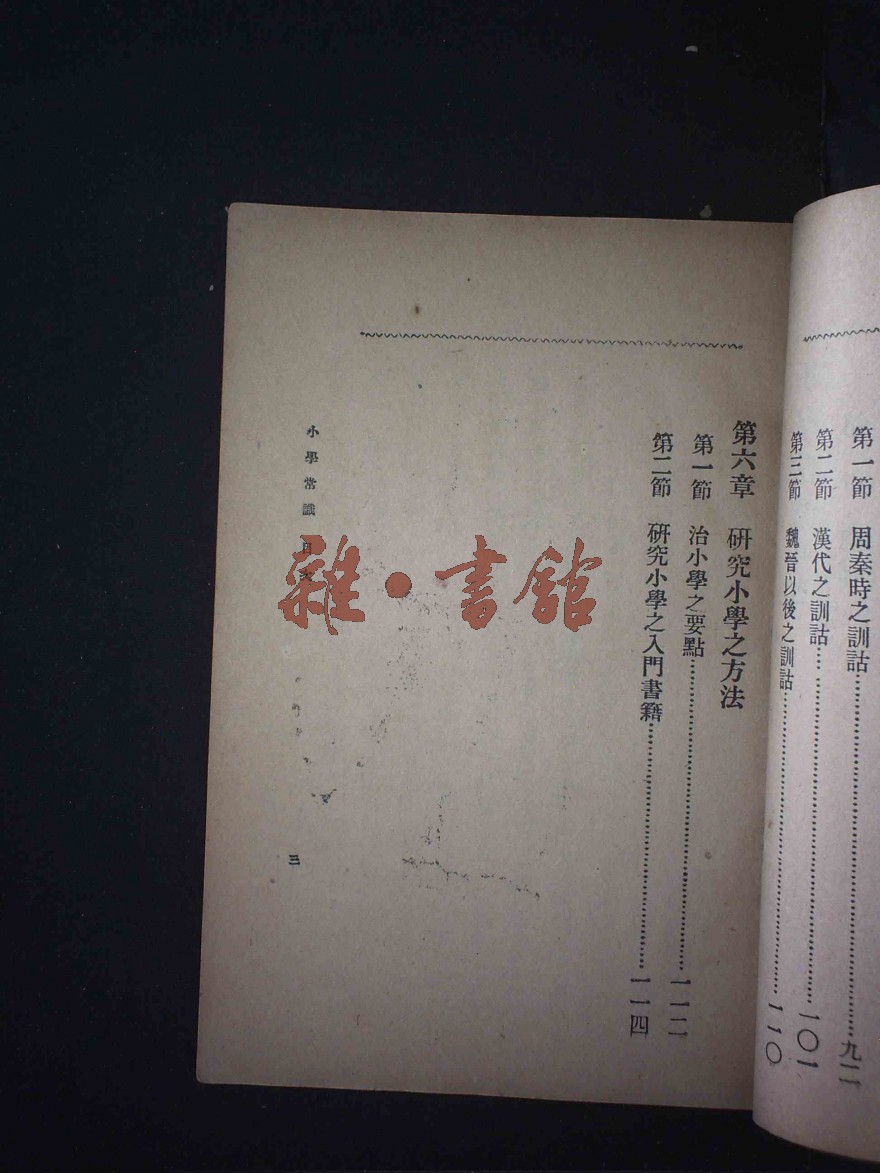 第一節　周秦時之訓詁……九二
第二節　漢代之訓詁……一〇一
第三節　魏晉以後之訓詁……一一〇
第六章　研究小學之方法
第一節　治小學之要點……一一二
第二節　研究小學之入門書籍……一一四
小學常識
三
雜·書館